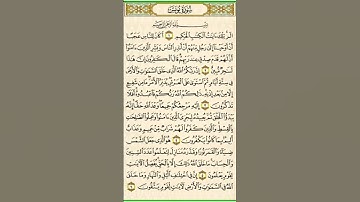 سُورَةُ يُونُسَ
بِسْمِ اللَّهِ الرَّحْمَٰنِ الرَّحِيمِ
الٓر تِلْكَ ءَايَٰتُ الْكِتَٰبِ الْحَكِيمِ أَكَانَ لِلنَّاسِ عَجَبًا
أَنْ أَوْحَيْنَا إِلَىٰ رَجُلٍ مِّنْهُمْ أَنْ أَنذِرِ النَّاسَ وَبَشِّرِ الَّذِينَ ءَامَنُوا
أَنَّ لَهُمْ قَدَمَ صِدْقٍ عِندَ رَبِّهِمْ قَالَ الْكَٰفِرُونَ إِنَّ هَٰذَا
لَسَٰحِرٌ مُّبِينٌ إِنَّ رَبَّكُمُ اللَّهُ الَّذِي خَلَقَ السَّمَٰوَٰتِ وَالْأَرْضَ
فِي سِتَّةِ أَيَّامٍ ثُمَّ اسْتَوَىٰ عَلَى الْعَرْشِ يُدَبِّرُ الْأَمْرَ مَا مِن شَفِيعٍ
إِلَّا مِن بَعْدِ إِذْنِهِ ذَٰلِكُمُ اللَّهُ رَبُّكُمْ فَاعْبُدُوهُ أَفَلَا
تَذَكَّرُونَ إِلَيْهِ مَرْجِعُكُمْ جَمِيعًا وَعْدَ اللَّهِ حَقًّا إِنَّهُ
يَبْدَؤُا الْخَلْقَ ثُمَّ يُعِيدُهُ لِيَجْزِيَ الَّذِينَ ءَامَنُوا وَعَمِلُوا الصَّٰلِحَٰتِ
بِالْقِسْطِ وَالَّذِينَ كَفَرُوا لَهُمْ شَرَابٌ مِّنْ حَمِيمٍ وَعَذَابٌ
أَلِيمٌ بِمَا كَانُوا يَكْفُرُونَ هُوَ الَّذِي جَعَلَ الشَّمْسَ
ضِيَاءً وَالْقَمَرَ نُورًا وَقَدَّرَهُ مَنَازِلَ لِتَعْلَمُوا عَدَدَ السِّنِينَ
وَالْحِسَابَ مَا خَلَقَ اللَّهُ ذَٰلِكَ إِلَّا بِالْحَقِّ يُفَصِّلُ الْءَايَٰتِ
لِقَوْمٍ يَعْلَمُونَ إِنَّ فِي اخْتِلَٰفِ اللَّيْلِ وَالنَّهَارِ وَمَا خَلَقَ
اللَّهُ فِي السَّمَٰوَٰتِ وَالْأَرْضِ لَءَايَٰتٍ لِّقَوْمٍ يَتَّقُونَ